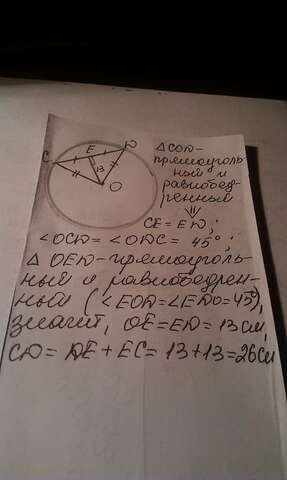 C E D
13
O
△COD-
прямоуголь-
ный и
равнобед-
ренный
⇓
CE = ED;
∠OCD = ∠ODC = 45°;
△ OED-прямоуголь-
ный и равнобедрен-
ный (∠EOD=∠EDO=45°),
значит, OE=ED= 13 см;
CD = DE + EC = 13+13=26см